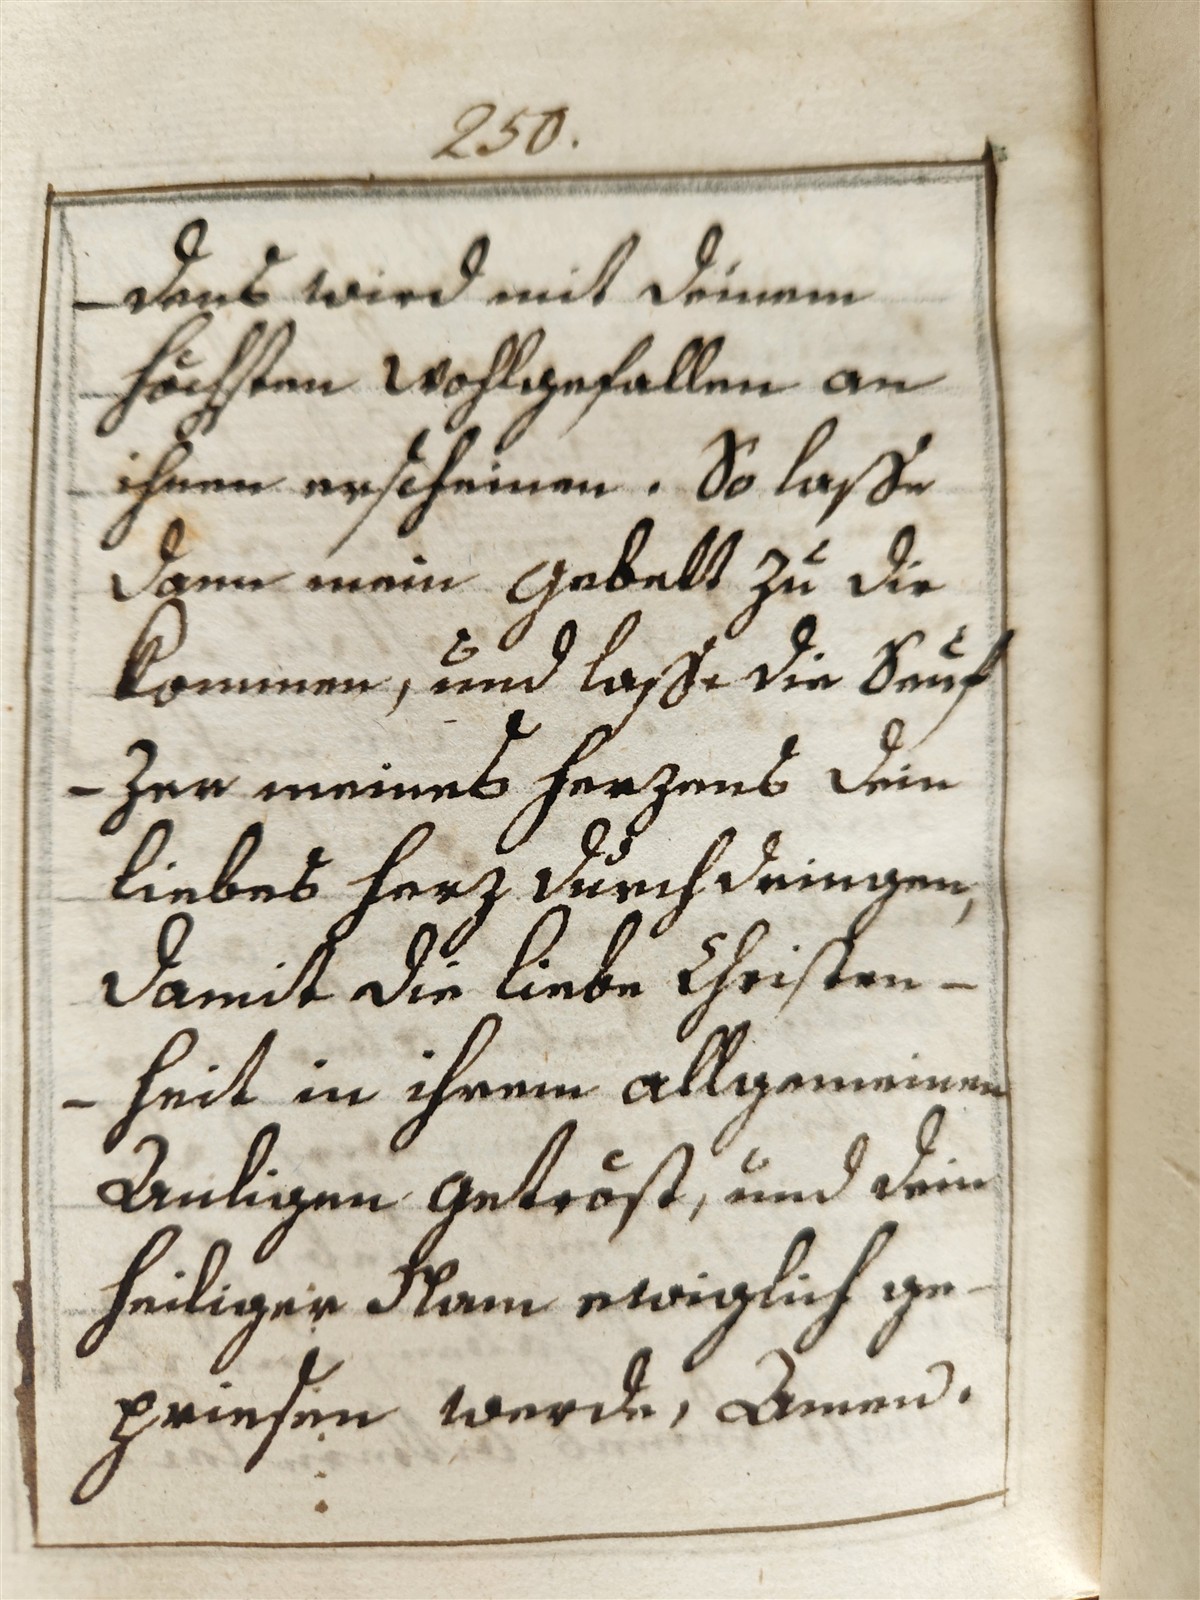 250.
-dens wird mit deinem
höchsten wohlgefallen an
ihnen erscheinen. So lasse
dann mein gebett zu dir
kommen, und lasse die Seuf
-zer meines herzens dein
liebes herz durchdringen,
damit die liebe Christen-
-heit in ihrem allgemeinen
Anligen getröst, und dein
heiliger Nam ewiglich ge-
priesen werde, Amen.